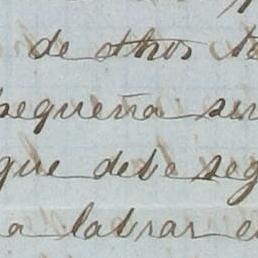 de othos
pequeña
que debe seg
a labrar e